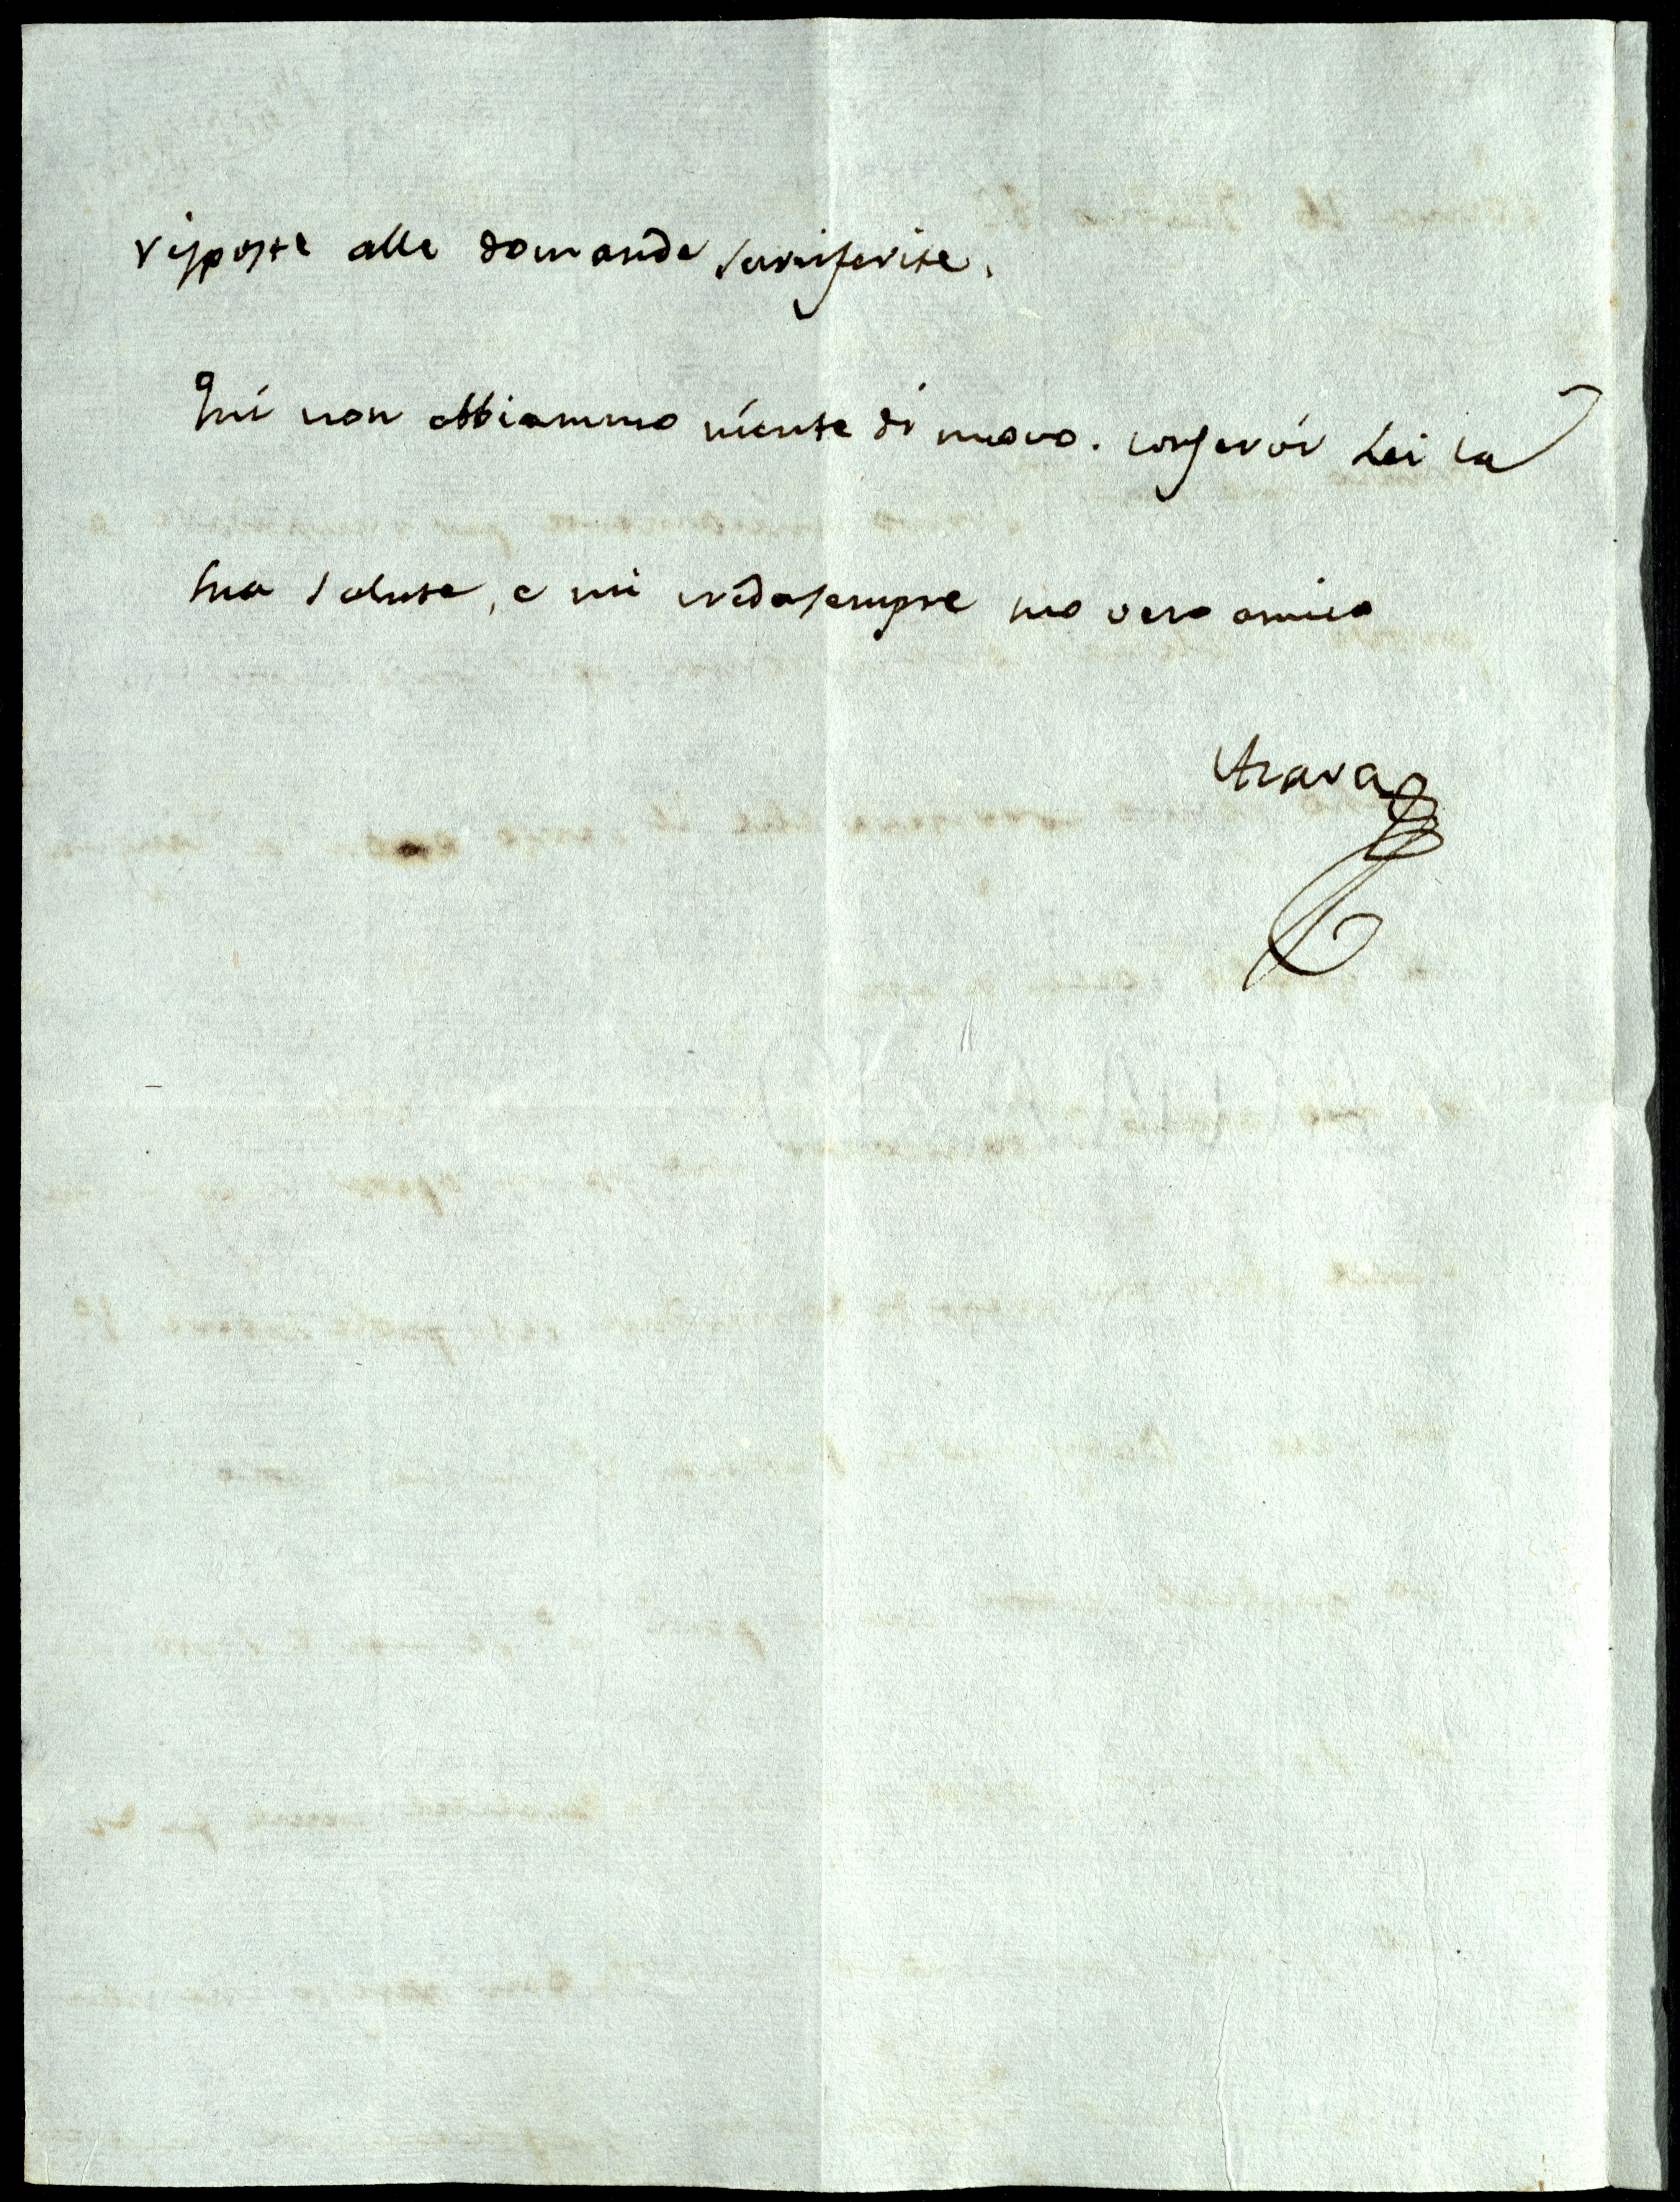 risposte alle domande
Qui non abbiammo niente di nuovo. conservói Lei la
sua salute, e mi creda sempre suo vero amico
Azara